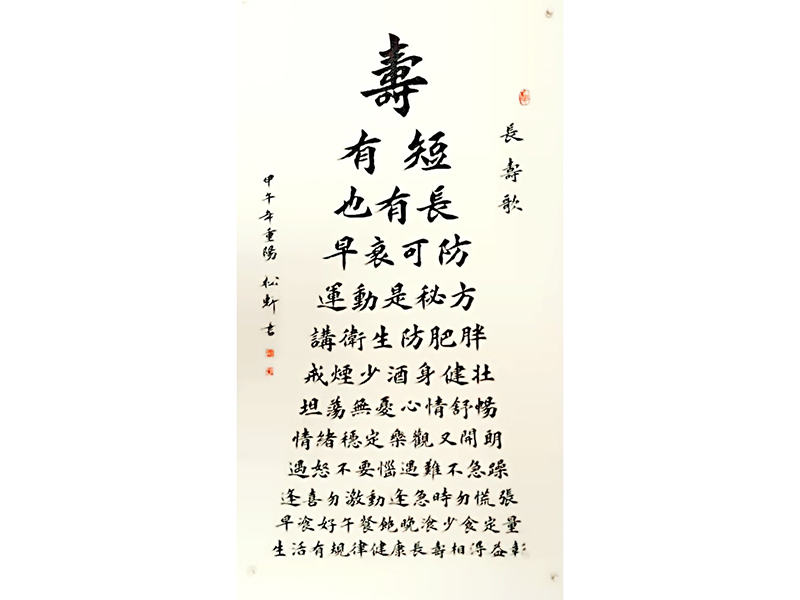 長壽歌
壽
有短
也有長
早衰可防
運動是秘方
講衛生防肥胖
戒煙少酒身健壮
坦蕩無憂心情舒暢
情緒穩定樂觀又開朗
遇怒不要惱遇難不急躁
逢喜勿激動逢急時勿慌張
早飡好午餐飽晚飡少食定量
生活有規律健康長壽相得益彰
甲午年重陽 松軒书